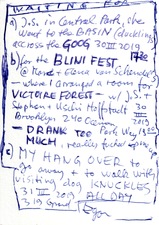 WAITING FOR
a) J.S. in Central Park, she
went to the BASIN (duckling
across the GOOG 30 III 2019
b) for the BLINI FEST.
@ René + Elena von Schen
where I arranged a room for
VICTOIRE FOREST — w/ J.S. +
Stephen + Uschi Hoffstadt 30
Brooklyn 240 Ocean III
Park Way 2019
— DRANK TOO
MUCH,
c) MY HANG OVER to
go away + to walk with
visiting dog KNUCKLES
31 III 2019 ALL DAY
319 Grand
Egon